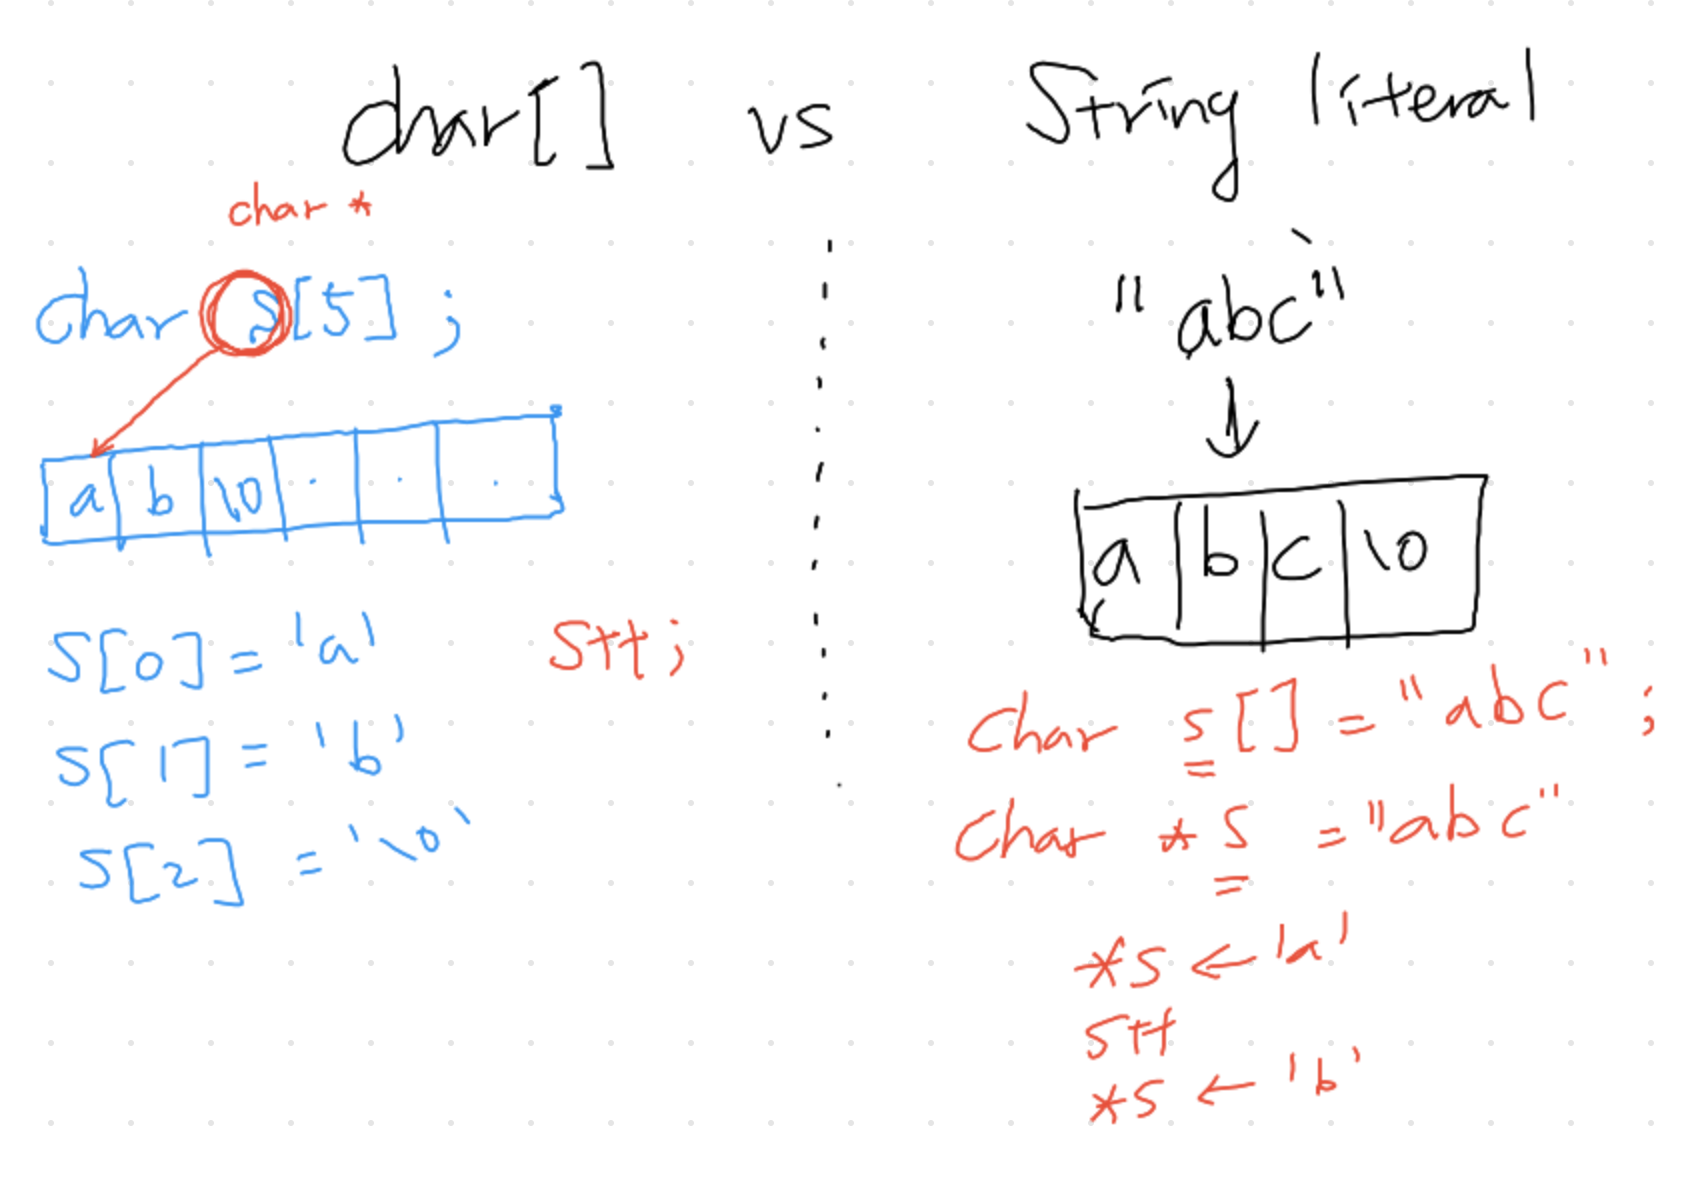 char[] vs String literal
char *
char s[5];
a b \0 . . .
s[0] = 'a'
s++;
s[1] = 'b'
s[2] = '\0'
"abc"
↓
a b c \0
char s[] = "abc";
char *s = "abc"
*s ← 'a'
s++
*s ← 'b'